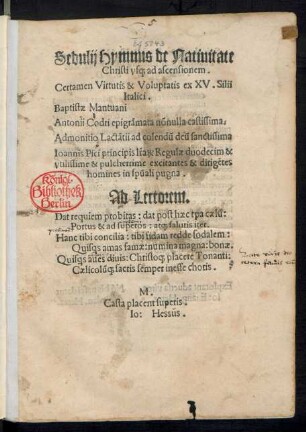 Sedulij Hymnus de Natiuitate
Christi vsq; ad ascensionem.
Certamen Virtutis & Voluptatis ex XV. Silii
Italici.
Baptistæ Mantuani
Antonii Codri epigrãmata nõnulla castissima.
Admonitio Lactãtii ad colendũ deũ sanctissima
Ioannis Pici principis
Regulæ duodecim &
vtilissimæ & pulcherrimæ excitantes & dirigẽtes
homines in spũali pugna.
König.
Bibliothek
Berlin
Ad Lectorem.
Dat requiem probitas: dat post hæc tẽpa cælũ:
Portus & ad superos: atq; salutis iter.
Hanc tibi concilia: tibi fidam redde sodalem:
Quisq; amas famæ: numina magna: bonæ.
Quisq; aues diuis: Christoq; placere Tonanti:
Cælicolũq; sactis semper inesse choris.
M.
Casta placent superis.
Io: Hessus.